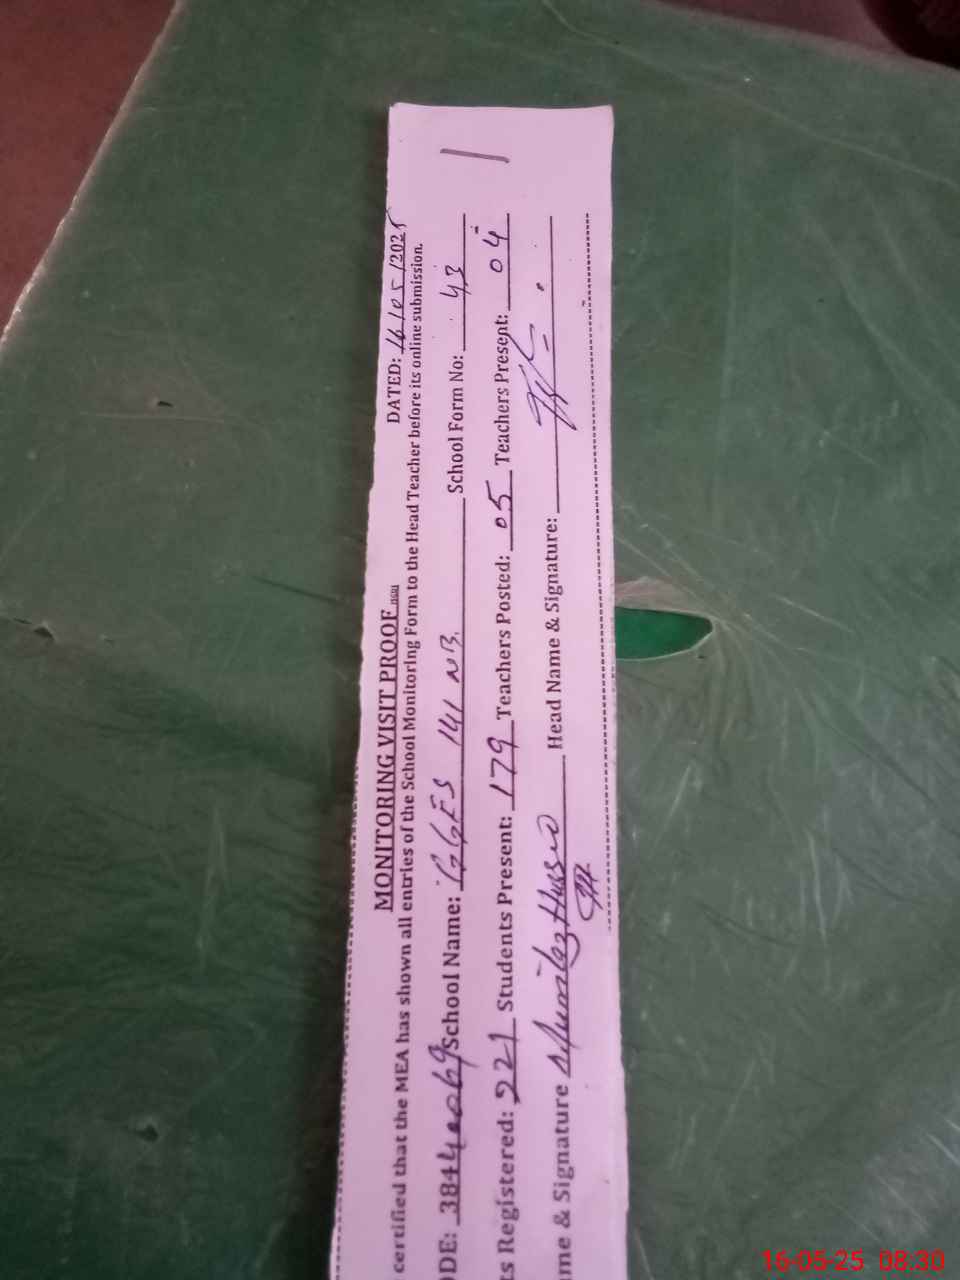 MONITORING VISIT PROOF
DATED: 16/05/2025
certified that the MEA has shown all entries of the School Monitoring Form to the Head Teacher before its online submission.
ODE: 38440069 School Name: GGES 141 NB. School Form No: 43
ts Registered: 221 Students Present: 179 Teachers Posted: 05 Teachers Present: 04
me & Signature Mumtaz Hussain Head Name & Signature:
16-05-25 08:30